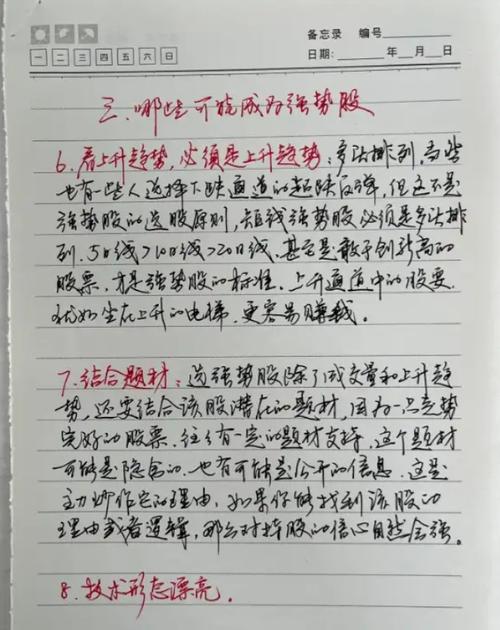 备忘录 编号
日期: 年 月 日
一 二 三 四 五 六 日
三、哪些可能成为强势股
6、看上升趋势,必须是上升趋势:多头排列,当然
也有一些人选择下跌通道的超跌反弹,但这不是
强势股的选股原则,短线强势股必须是多头排
列,5日线>10日线>20日线,甚至是敢于创新高的
股票,才是强势股的标准。上升通道中的股票
犹如坐在上升的电梯,更容易赚钱。
7、结合题材:选强势股除了成交量和上升趋
势,还要结合该股潜在的题材,因为一只走势
完好的股票,往往有一定的题材支持,这个题材
可能是隐含的,也有可能是公开的信息,这是
主力炒作它的理由,如果你能找到该股的
理由或者逻辑,那么对持股的信心自然会强。
8、技术形态漂亮。